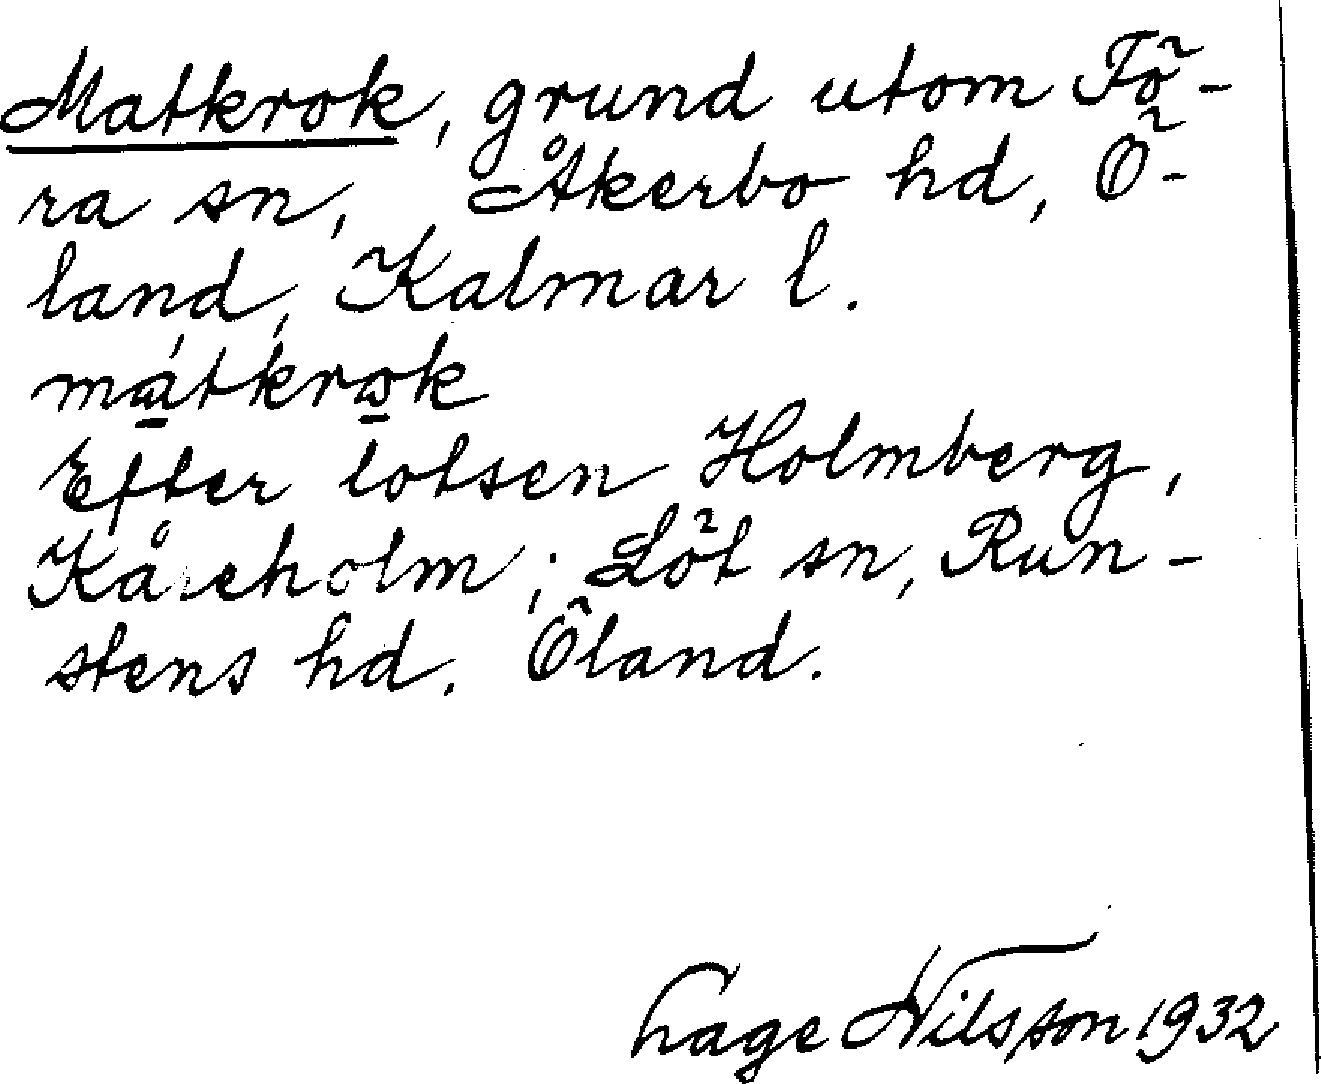 Matkrok, grund utom Fö-
ra sn, Åkerbo hd, Ö-
land, Kalmar l.
matkrok
Efter lotsen Holmberg,
Kåreholm; Löt sn, Run-
stens hd. Öland.
hage Nilsson 1932